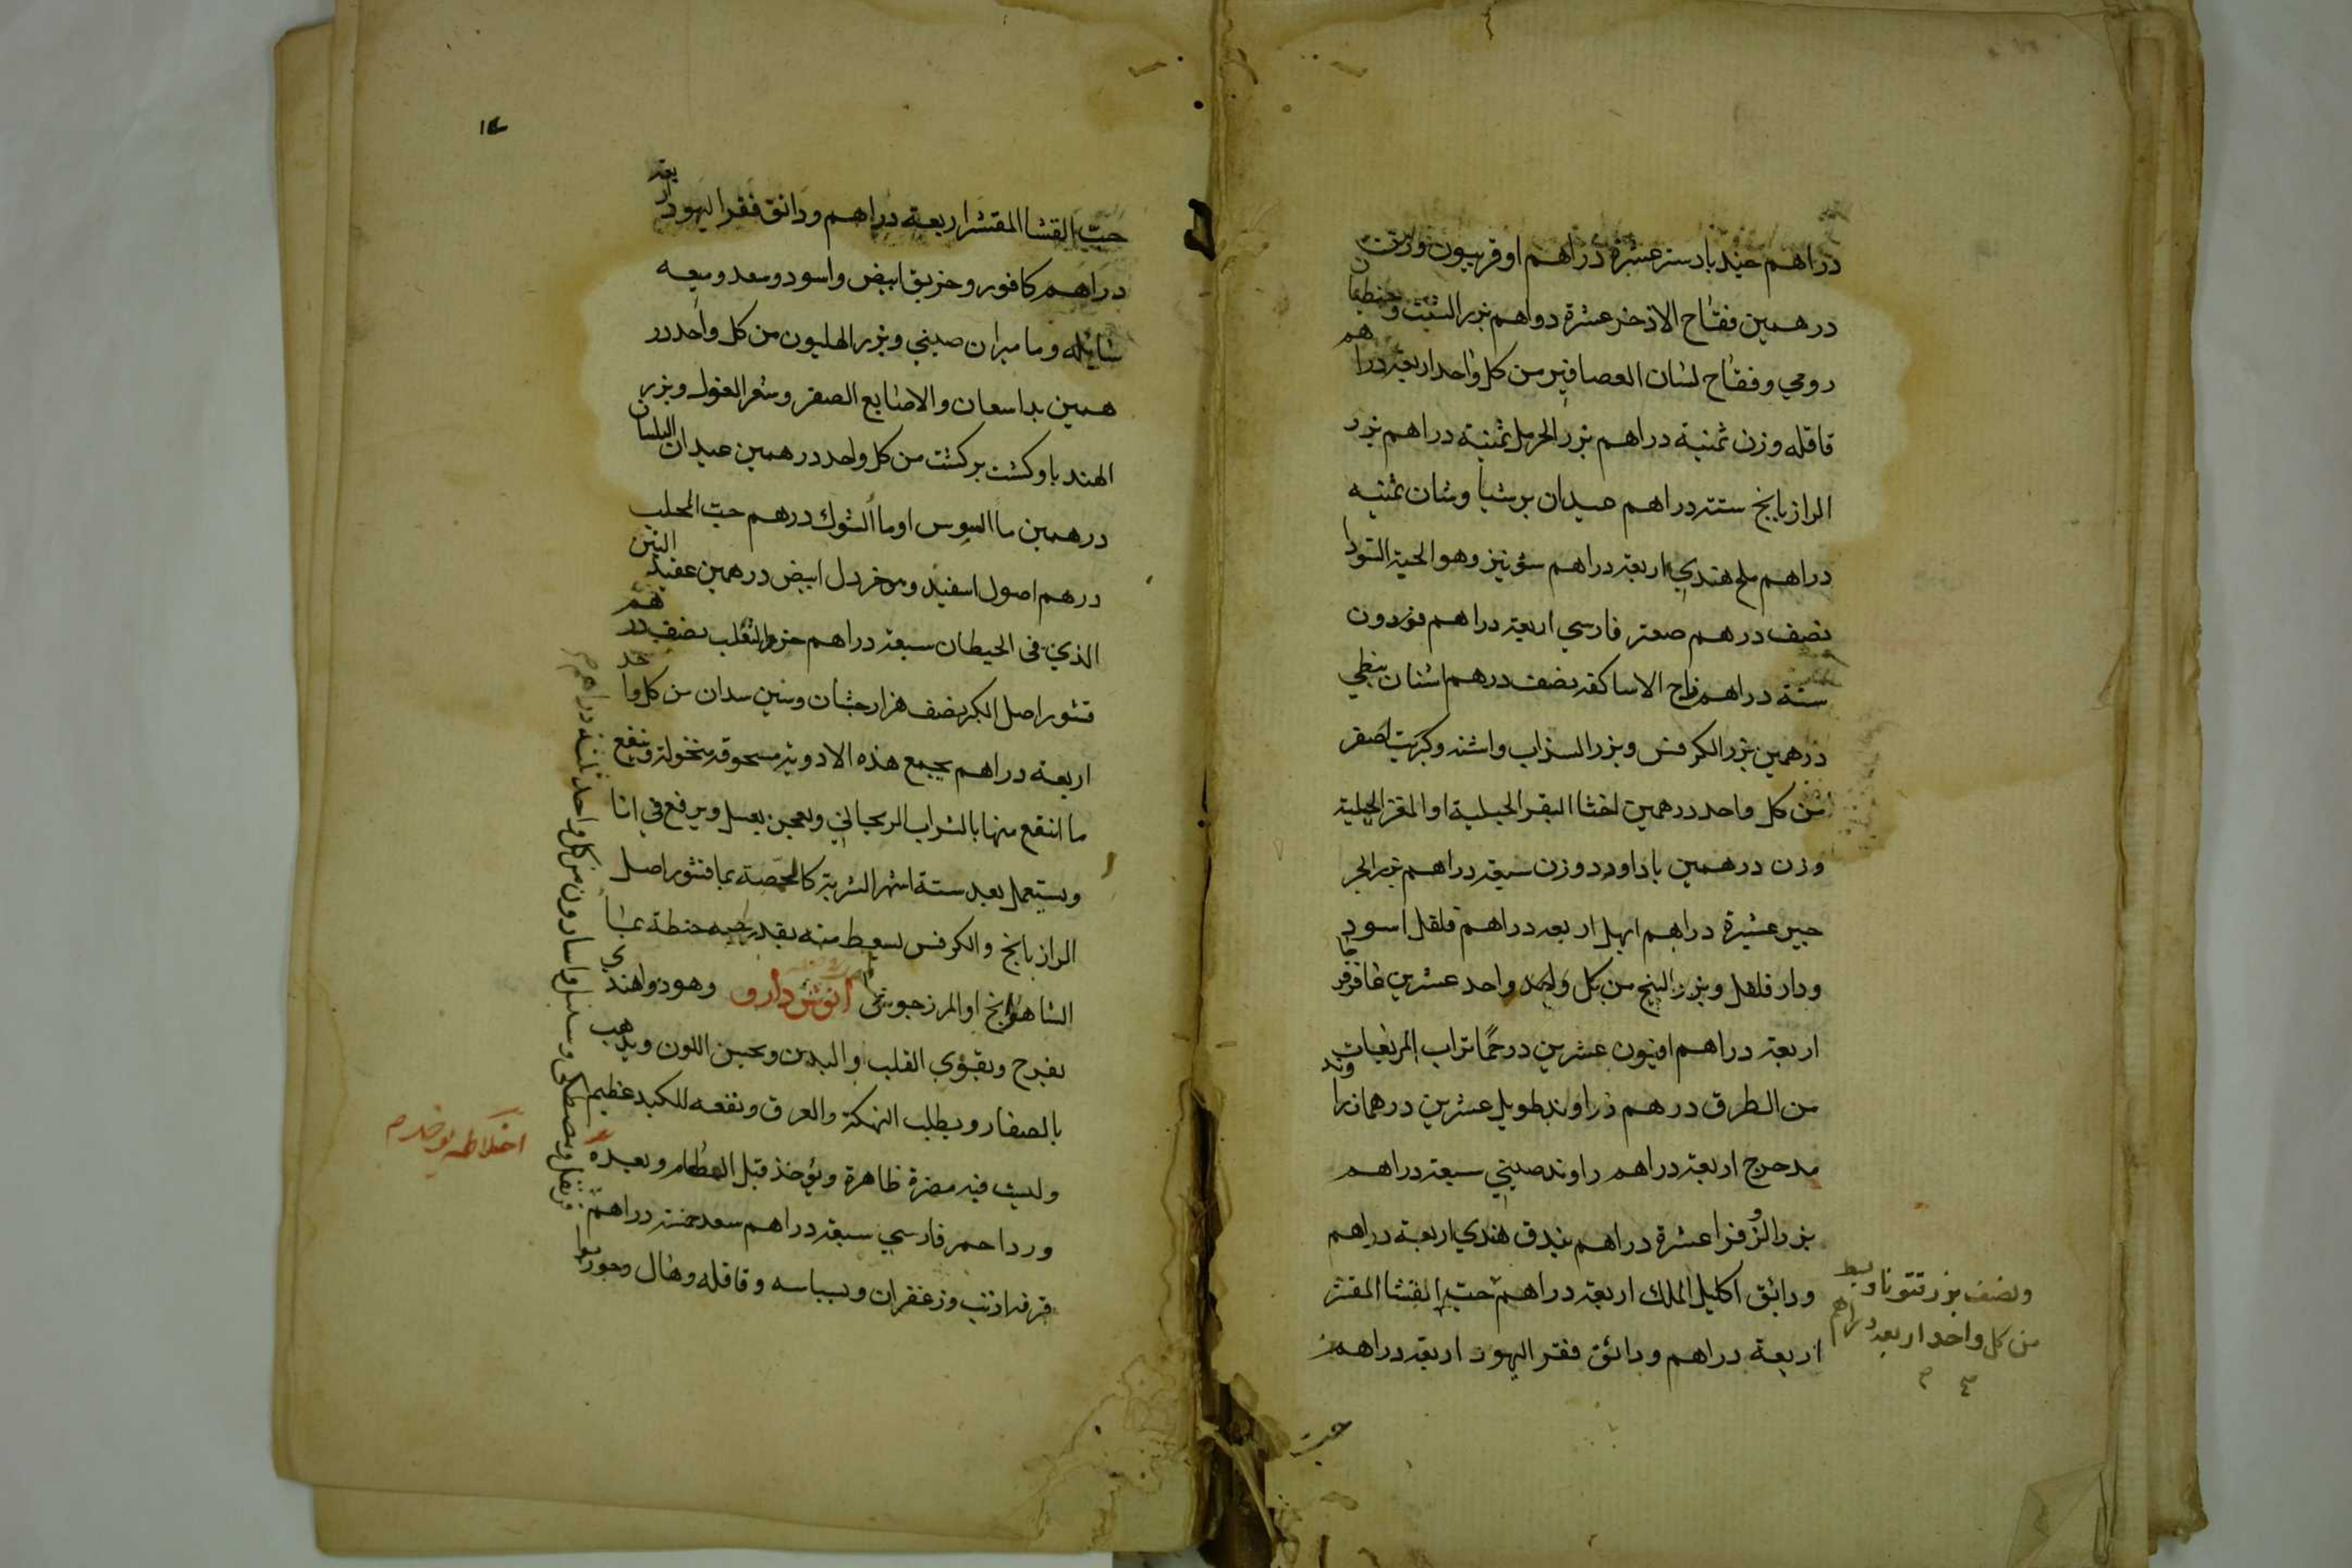 دراهم جندبادستر عشرة دراهم اوفربيون وزن
درهمين فقاح الاذخر عشرة دراهم بزر الشبت وجنطيانا
رومي وفقاح لسان العصافير من كل واحد اربعة دراهم
قاقله وزن ثمنية دراهم بزر الحرمل ثمنية دراهم بزر
الرازيانج ستة دراهم عيدان برشياوشان ثمنيه
دراهم ملح هندي اربعة دراهم شونيز وهو الحبة السودا
نصف درهم صعتر فارسي اربعة دراهم فوردون
ستة دراهم زاج الاساكفة نصف درهم اشنان نبطي
درهمين بزر الكرفس وبزر السذاب واشنه وكبريت اصفر
من كل واحد درهمين اخثا البقر الجبلية او المعز الجبلية
وزن درهمين باداورد وزن سبعة دراهم بزر الجر
جير عشرة دراهم ابهل اربعه دراهم فلفل اسود
ودار فلفل وبزر البنج من كل واحد واحد عشرين عاقرقرحا
اربعة دراهم افيون عشرين درهما تراب المربعات
من الطرق درهم زراوند طويل عشرين درهما زراوند
مدحرج اربعة دراهم راوند صيني سبعة دراهم
بزر الزوفرا عشرة دراهم بندق هندي اربعة دراهم
ودانق اكليل الملك اربعة دراهم حب القثا المقشر
اربعة دراهم ودانق فقر اليهود اربعة دراهم
ونصف بزر قتونا
من كل واحد اربعه دراهم
حب
حب القثا المقشر اربعة دراهم ودانق فقر اليهود اربعة
دراهم كافور وخربق ابيض واسود وسعد وميعه
سايله وماميران صيني وبزر الهليون من كل واحد در
همين بداسعان والاصابع الصفر وشعر الغول وبزر
الهندبا وكشت بركشت من كل واحد درهمين عيدان البلسان
درهمين ما السوس او ما الشوك درهم حب المحلب
درهم اصول اسفيد ومرخردل ابيض درهمين عقيد التين
الذي في الحيطان سبعة دراهم خرو الثعلب نصف درهم
قشور اصل الكبر نصف هزارجشان وسين سدان من كل واحد
اربعة دراهم يجمع هذه الادوية مسحوقة منخولة وينقع
ما انتقع منها بالشراب الريحاني ويعجن بعسل ويرفع في انا
ويستعمل بعد ستة اشهر الشربة كالحمصة بما قشور اصل
الرازيانج والكرفس يسعط منه بقدر حبه حنطة بما
الشاهبانج او المرزجوش انوش دارو وهو دوا هندي
يفرح ويقوي القلب والبدن ويحسن اللون ويذهب
بالصفار ويطيب النهكة والعرق ونفعه للكبد عظيم
وليست فيه مضرة ظاهرة ويؤخذ قبل الطعام وبعده
ورد احمر فارسي سبعة دراهم سعد خمسة دراهم
قرفه ارنب وزعفران وبسباسه وقاقله وهال وجوزبوا
قرنفل ومصطكي وسنبل واسارون من كل واحد ثلثة دراهم
اخلاطه يوخذ